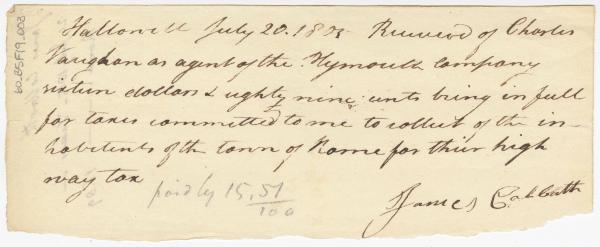 Hallowell July 20. 180 Received of Charles
Vaughan as agent of the Plymouth Company
sixteen dollars & eighty nine cents being in full
for taxes committed to me to collect of the in-
habetents of the town of Rome for thier high
way tax
paid by 15,51/100
James
60_B5F19_002